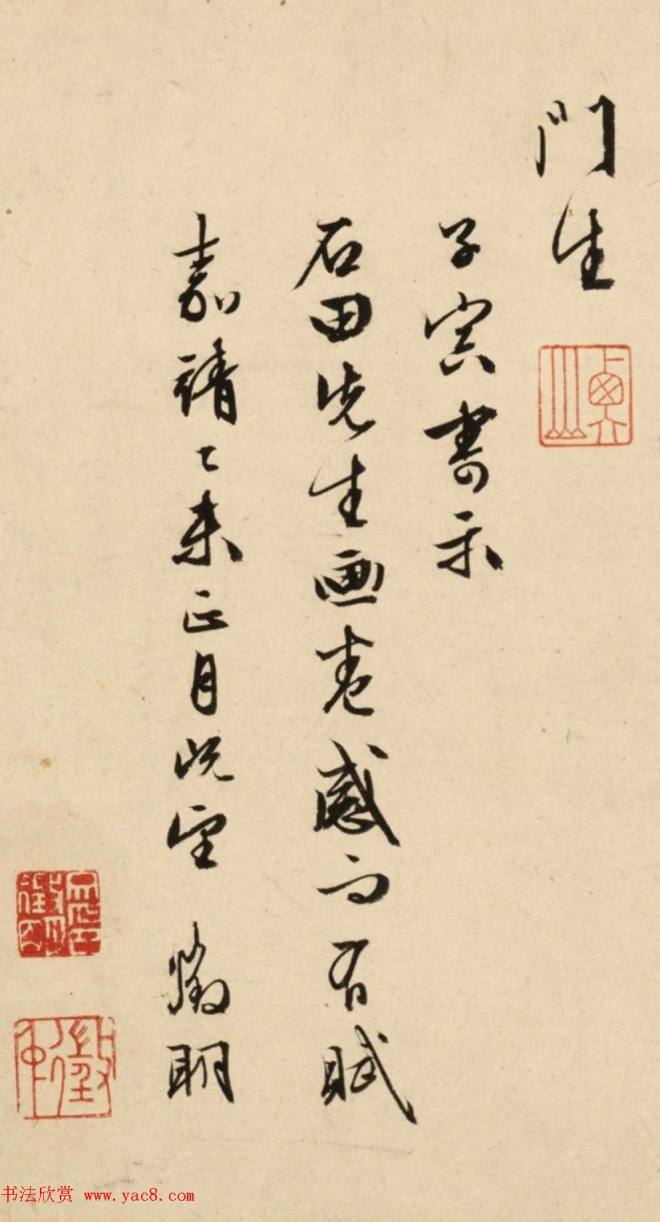 門生
子書示
石田先生画卷感而有賦
嘉靖乙未正月既望 徵明
徵仲
书法欣赏 www.yac8.com